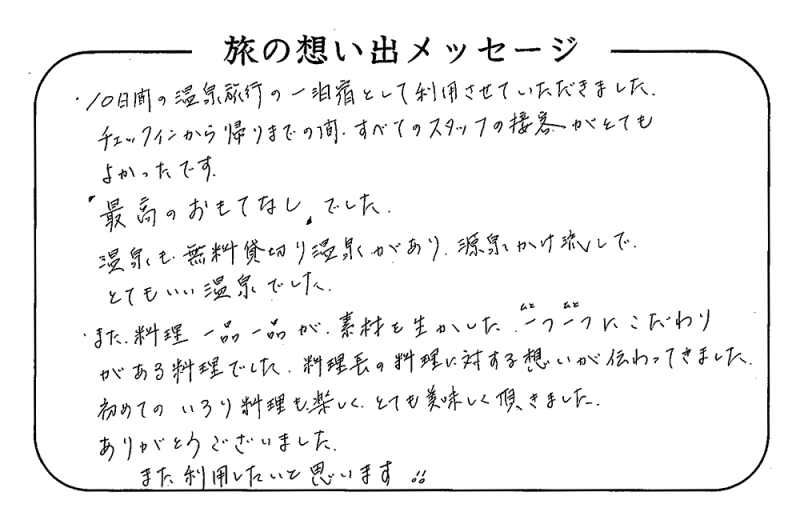 旅の想い出メッセージ
・10日間の温泉旅行の一泊宿として利用させていただきました.
チェックインから帰りまでの間、すべてのスタッフの接客がとても
よかったです.
"最高のおもてなし"でした.
温泉も無料貸切り温泉があり、源泉かけ流しで、
とてもいい温泉でした.
・また、料理 一品一品が、素材を生かした、一つ一つにこだわり
がある料理でした、料理長の料理に対する想いが伝わってきました.
初めてのいろり料理も楽しく、とても美味しく頂きました.
ありがとうございました.
また利用したいと思います!!